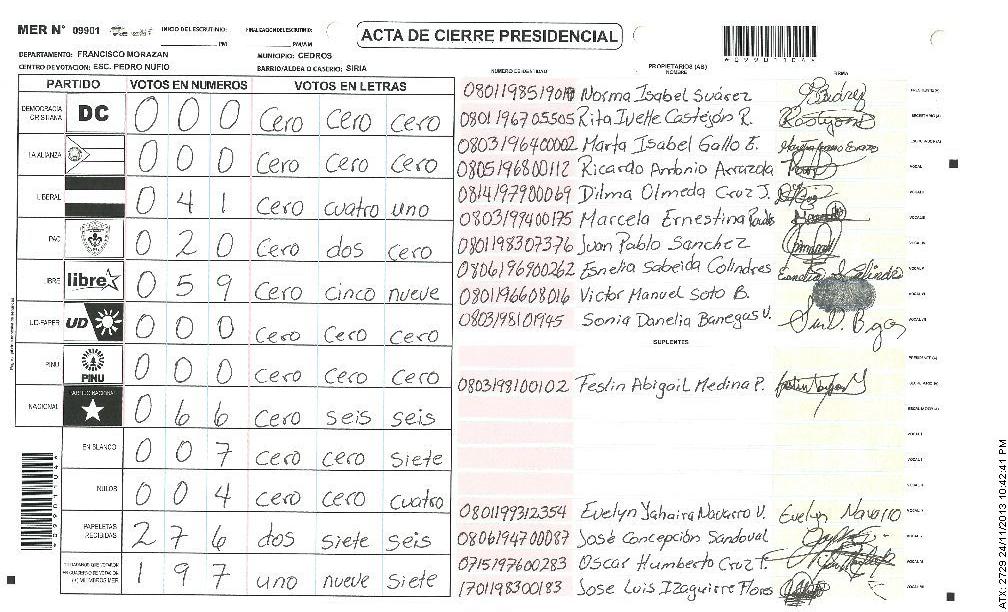 MER N° 09901 INICIO DEL ESCRUTINIO: PM FINALIZACION DEL ESCRUTINIO: PM/AM
ACTA DE CIERRE PRESIDENCIAL
DEPARTAMENTO: FRANCISCO MORAZAN MUNICIPIO: CEDROS
CENTRO DE VOTACION: ESC. PEDRO NUFIO BARRIO/ALDEA O CASERIO: SIRIA
PARTIDO VOTOS EN NUMEROS VOTOS EN LETRAS
DEMOCRACIA CRISTIANA DC 0 0 0 cero cero cero
LA ALIANZA 0 0 0 cero cero cero
LIBERAL 0 4 1 cero cuatro uno
PAC 0 2 0 cero dos cero
LIBRE libre 0 5 9 cero cinco nueve
UD-FAPER UD 0 0 0 cero cero cero
PINU PINU 0 0 0 cero cero cero
NACIONAL 0 6 6 cero seis seis
EN BLANCO 0 0 7 cero cero siete
NULOS 0 0 4 cero cero cuatro
PAPELETAS RECIBIDAS 2 7 6 dos siete seis
1 9 7 uno nueve siete
NUMERO DE IDENTIDAD PROPIETARIOS (AS) NOMBRE FIRMA
Norma Isabel Suárez
0801196705505 Rita Ivette Castejón R.
0803196400002 Marta Isabel Gallo E.
0805196800112 Ricardo Antonio Arrazola
0814197900069 Dilma Olmeda Cruz J.
0803199400175 Marcela Ernestina
0801198307376 Juan Pablo Sanchez
0806196900262 Esnelia Sabeida Colindres
0801196608016 Victor Manuel Soto B.
0803198101945 Sonia Danelia Banegas V.
SUPLENTES
0803198100102 Feslin Abigail Medina P.
0801199312354 Evelyn Yahaira Navarro V. Evelyn Navarro
0806194700087 José Concepción Sandoval
0715197600283 Oscar Humberto Cruz T.
1701198300183 Jose Luis Izaguirre Flores
ATX: 2729 24/11/2013 10:42:41 PM